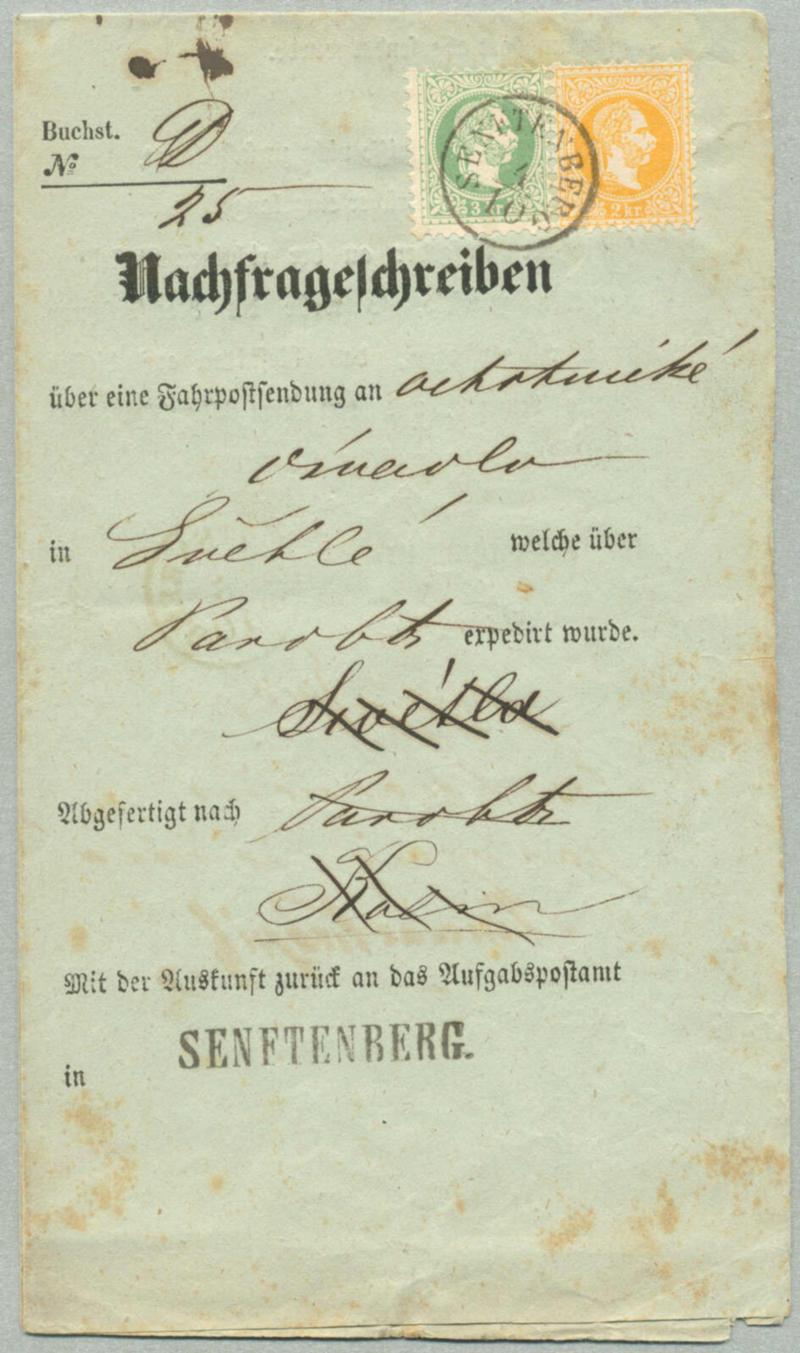 Buchst. D
№ 25
3 kr 2 kr.
SENFTENBERG
4
10
Nachfrageschreiben
über eine Fahrpostsendung an ochotnické
divadlo
in Světlé welche über
Pardbtz expedirt wurde.
Světlá
Abgefertigt nach Pardbtz
Kolin
Mit der Auskunft zurück an das Aufgabspostamt
SENFTENBERG.
in